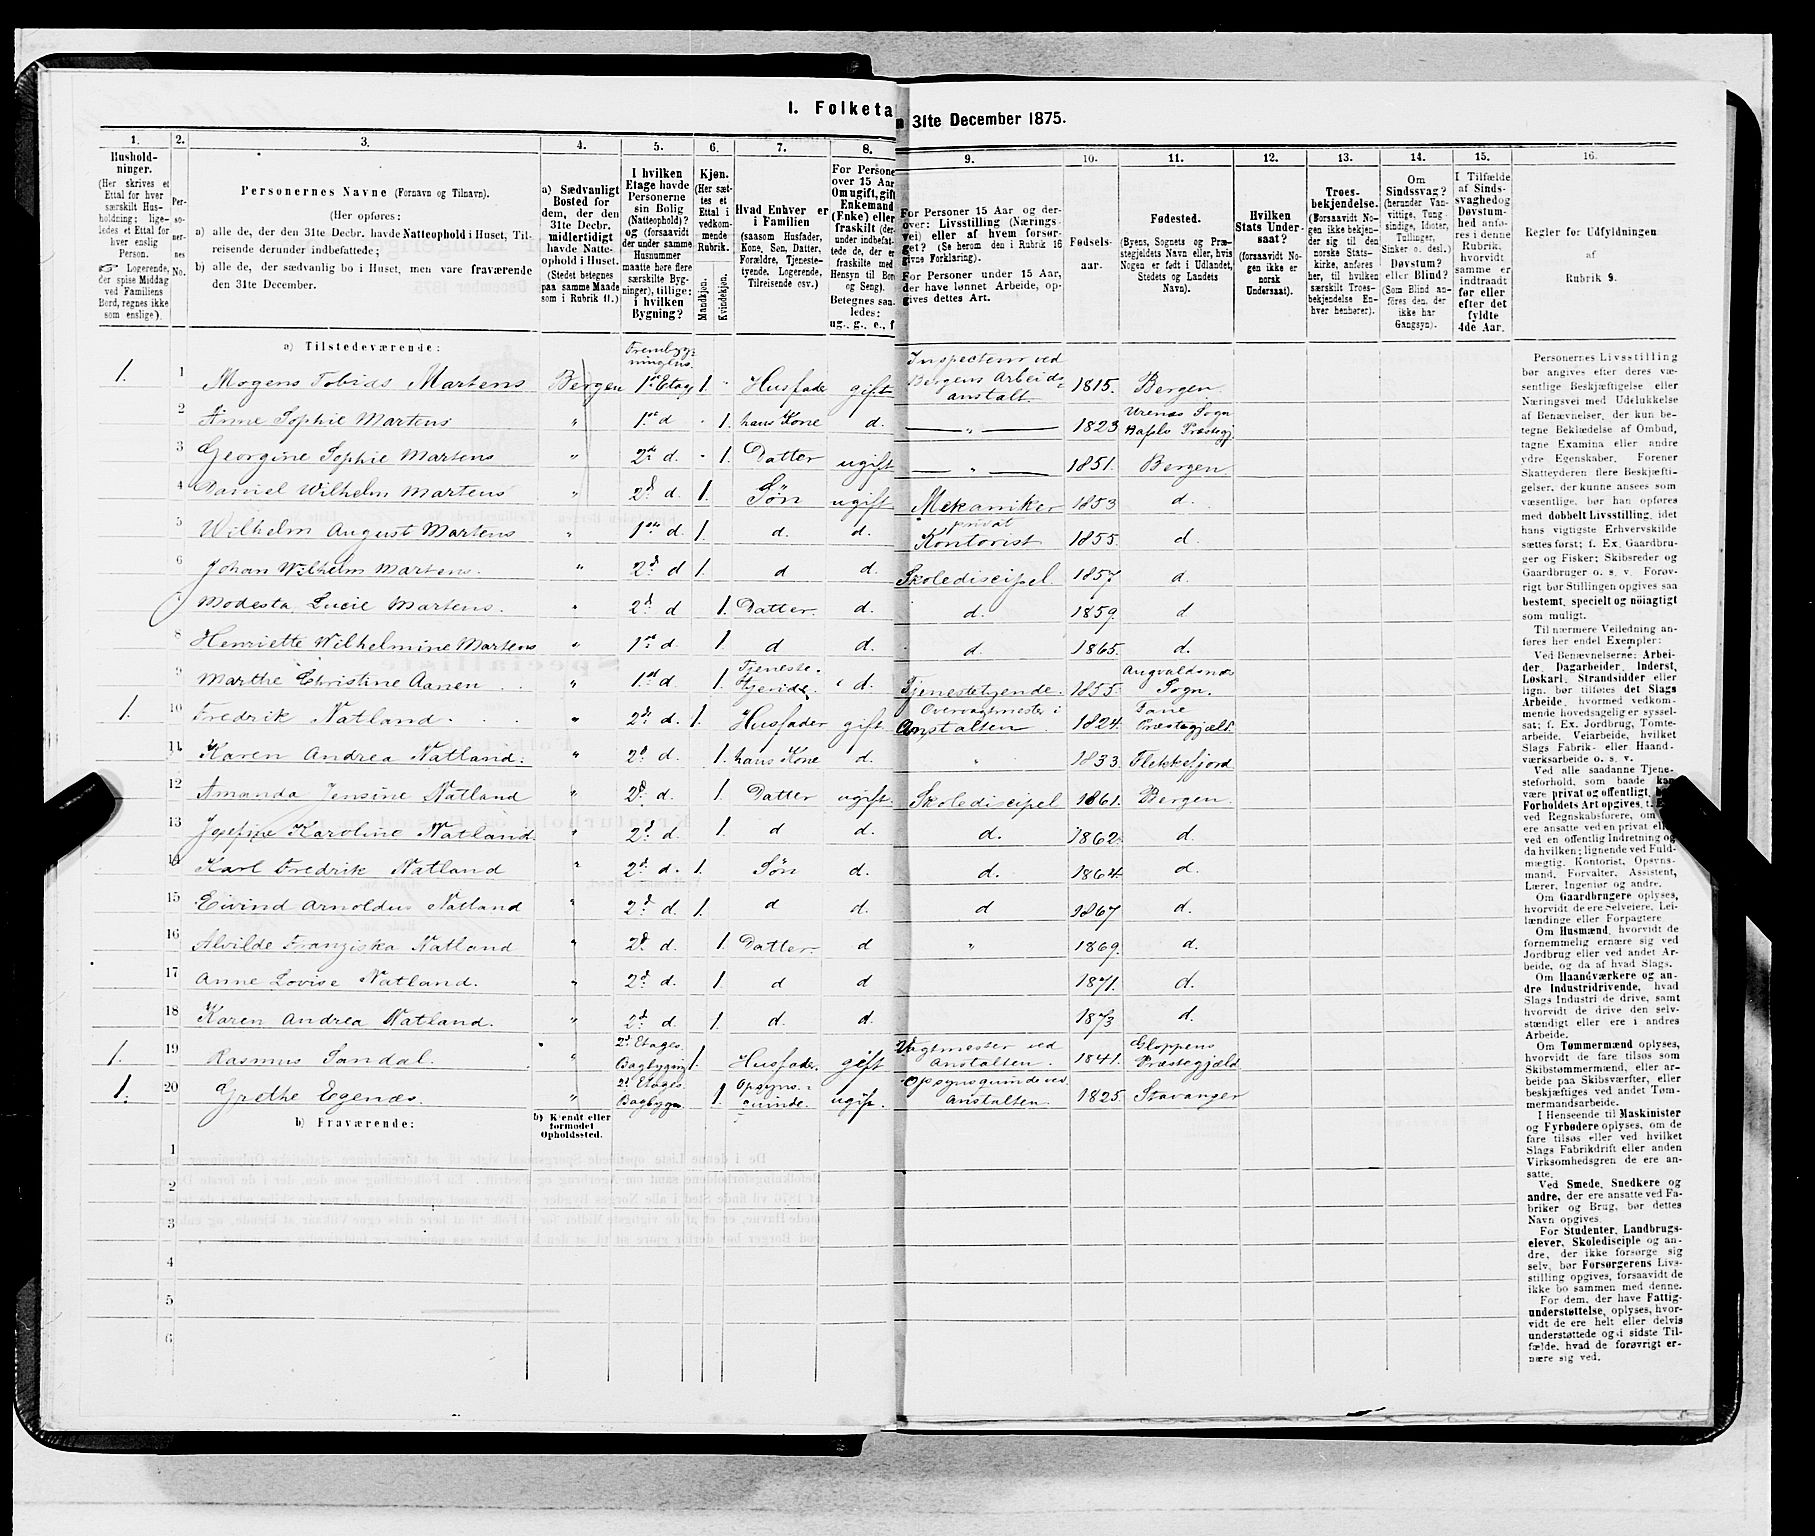 I. Folketa
n 31te December 1875.
1.
2.
3.
4.
5.
6.
7.
8.
9.
10.
11.
12.
13.
14.
15.
16.
Hushold-
ninger.
(Her skrives et
Ettal for hver
særskilt Hus-
holdning; lige-
ledes et Ettal for
hver enslig
Person.
☞ Logerende,
der spise Middag
ved Familiens
Bord, regnes ikke
som enslige).
Per-
so-
ner-
nes
No.
Personernes Navne (Fornavn og Tilnavn).
(Her opføres:
a) alle de, der den 31te Decbr. havde Natteophold i Huset, Til-
reisende derunder indbefattede;
b) alle de, der sædvanlig bo i Huset, men vare fraværende
den 31te December.
a) Sædvanligt
Bosted for
dem, der den
31te Decbr.
midlertidigt
havde Natte-
ophold i Huset.
(Stedet betegnes
paa samme Maade
som i Rubrik 11.)
I hvilken
Etage havde
Personerne
sin Bolig
(Natteophold)?
og (forsaavidt
der under samme
Husnummer
maatte høre flere
særskilte Byg-
ninger), tillige:
i hvilken
Bygning?
Kjøn.
(Her sæt-
tes et
Ettal i
vedkom-
mende
Rubrik.
Mandkjøn.
Kvindekjøn.
Hvad Enhver er
i Familien
(saasom Husfader,
Kone, Søn, Datter,
Forældre, Tjeneste-
tyende, Logerende,
Tilreisende osv.)
For Persone
over 15 Aar
Om ugift, gift
Enkemand
(Enke) eller
fraskilt (der-
under indbefat-
tede de, der er
fraskilte med
Hensyn til Bor
og Seng).
Betegnes saa-
ledes:
ug., g., e., f.
For Personer 15 Aar og der-
over: Livsstilling (Nærings-
vei) eller af hvem forsør-
get? (Se herom den i Rubrik 16
givne Forklaring).
For Personer under 15 Aar,
der have lønnet Arbeide, op-
gives dettes Art.
Fødsels-
aar.
Fødested.
(Byens, Sognets og Præ-
stegjeldets Navn, eller, hvis
Nogen er født i Udlandet,
Stedets og Landets
Navn).
Hvilken
Stats Under-
saat?
(forsaavidt No-
gen ikke er
norsk
Undersaat).
Troes-
bekjendelse.
(Forsaavidt No-
gen ikke bekjen-
der sig til den
norske Stats-
kirke, anføres
her, til hvilken
særskilt Troes-
bekjendelse En-
hver henhører).
Om
Sindssvag?
(herunder Van-
vittige, Tung-
sindige, Idioter,
Tullinger,
Sinker o. desl.)
Døvstum?
eller Blind?
(Som Blind an-
føres den, der
ikke har
Gangsyn).
I Tilfælde
af Sinds-
svaghed og
Døvstum-
hed anfø-
res i denne
Rubrik,
hvorvidt
samme er
indtraadt
før eller
efter det
fyldte
4de Aar.
Regler for Udfyldningen
af
Rubrik 9.
a) Tilstedeværende:
1. 1 Mogens Tobias Martens Bergen Frembygningens 1ste Etage 1. Husfader gift Inspecteur ved Bergens Arbeidsanstalt. 1815. Bergen.
2 Anne Sophie Martens " 1ste d 1. hans Kone d. " 1823 Urenæs Sogn Præstegj.
3 Georgine Sophie Martens " 2de d. 1. Datter ugift " 1851. Bergen
4 Daniel Wilhelm Martens " 2d d. 1. Søn ugift Mekaniker 1853 d.
5 Wilhelm August Martens " 1ste d 1. d. d. privat Kontorist 1855. d.
6 Johan Wilhelm Martens. " 2d d 1. d d. Skolediscipel 1857 d.
7 Modesta Lucie Martens. " 2d d 1. Datter. d. d. 1859. d
8 Henriette Wilhelmine Martens " 1ste d. 1. d d. d. 1865. d.
9 Marthe Christine Aanen " 1ste d. 1. Tjenestetyende. d. Tjenestetyende. 1855. Augvaldsnæs Sogn.
1. 10 Fredrik Natland. " 2d d. 1. Husfader gift. Overvagtmester i Anstalten 1824. Fane Præstegjæld.
11 Karen Andrea Natland. " 2d d. 1. hans Kone d. " 1833. Flekkefjord
12 Amanda Jensine Natland " 2d d. 1. Datter ugift. Skolediscipel 1861. Bergen.
13 Josefine Karoline Natland. " 2d d. 1. d d. d. 1862. d.
14 Karl Fredrik Natland " 2d d. 1. Søn d. d. 1864. d.
15 Eivind Arnoldus Natland " 2d d. 1. d d. d 1867 d.
16 Alvilde Franziska Natland " 2d d. 1. Datter. d " 1869. d.
17 Anne Lovise Natland. " 2d d. 1. d d 1871. d.
18 Karen Andrea Natland. " 2d d. 1. d. d. 1873 d.
1. 19 Rasmus Sandal. " 2d Etages Bagbygning 1. Husfader. gift Vagtmester ved Anstalten. 1841. Gloppens Præstegjæld
1. 20 Grethe Egenæs. " 2d Etages Bagbygn. 1. Opsynsquinde. ugift. Opsynsquinde ved Anstalten. 1825. Stavanger
b) Fraværende:
b) Kjendt eller
formodet
Opholdssted.
1
2
3
4
5
6
Personernes Livsstilling
bør angives efter deres væ-
sentlige Beskjæftigelse eller
Næringsvei med Udelukkelse
af Benævnelser, der kun be-
tegne Beklædelse af Ombud,
tagne Examina eller andre
ydre Egenskaber. Forener
Skatteyderen flere Beskjæfti-
gelser, der kunne ansees som
væsentlige, bør han opføres
med dobbelt Livsstilling, idet
hans vigtigste Erhvervskilde
sættes først; f. Ex. Gaardbru-
ger og Fisker; Skibsreder og
Gaardbruger o. s. v. Forøv-
rigt bør Stillingen opgives saa
bestemt, specielt og nöiagtigt
som muligt.
Til nærmere Veiledning an-
føres her endel Exempler:
Ved Benævnelserne: Arbei-
der, Dagarbeider, Inderst,
Løskarl, Strandsidder eller
lign. bør tilføres det Slags
Arbeide, hvormed vedkom-
mende hovedsagelig er syssel-
sat; f. Ex. Jordbrug, Tomte-
arbeide, Veiarbeide, hvilket
Slags Fabrik- eller Haand-
værksarbeide o. s. v.
Ved alle saadanne Tjene-
steforhold, som baade kan
være privat og offentligt,
Forholdets Art opgives, t. E
ved Regnskabsførere, om
ere ansatte ved en privat ell
ved en offentlig Indretning og
da hvilken; lignende ved Fuld-
mægtig, Kontorist, Opsyns-
mand, Forvalter, Assistent,
Lærer, Ingeniør og andre.
Om Gaardbrugere oplyses,
hvorvidt de ere Selveiere, Lei-
lændinge eller Forpagtere.
Om Husmænd, hvorvidt de
fornemmelig ernære sig ved
Jordbrug eller ved andet Ar-
beide, og da af hvad Slags.
Om Haandværkere og an-
dre Industridrivende, hvad
Slags Industri de drive, samt
hvorvidt de drive den selv-
stændigt eller ere i andres
Arbeide.
Om Tømmermænd oplyses,
hvorvidt de fare tilsøs som
Skibstømmermænd, eller ar-
beide paa Skibsværfter, eller
beskjæftiges ved andet Tøm-
mermandsarbeide.
I Henseende til Maskinister
og Fyrbødere oplyses, om de
fare tilsøs eller ved hvilket
Slags Fabrikdrift eller anden
Virksomhedsgren de ere an-
satte.
Ved Smede, Snedkere og
andre, der ere ansatte ved Fa-
briker og Brug, bør dettes
Navn opgives.
For Studenter, Landbrugs-
elever, Skoledisciple og an-
dre, der ikke forsørge sig
selv, bør Forsørgerens Livs-
stilling opgives, forsaavidt de
ikke bo sammen med denne.
For dem, der have Fattig-
understøttelse, oplyses, hvor-
vidt de ere helt eller delvis
understøttede og i sidste Til-
fælde, hvad de forøvrigt er-
nære sig ved.